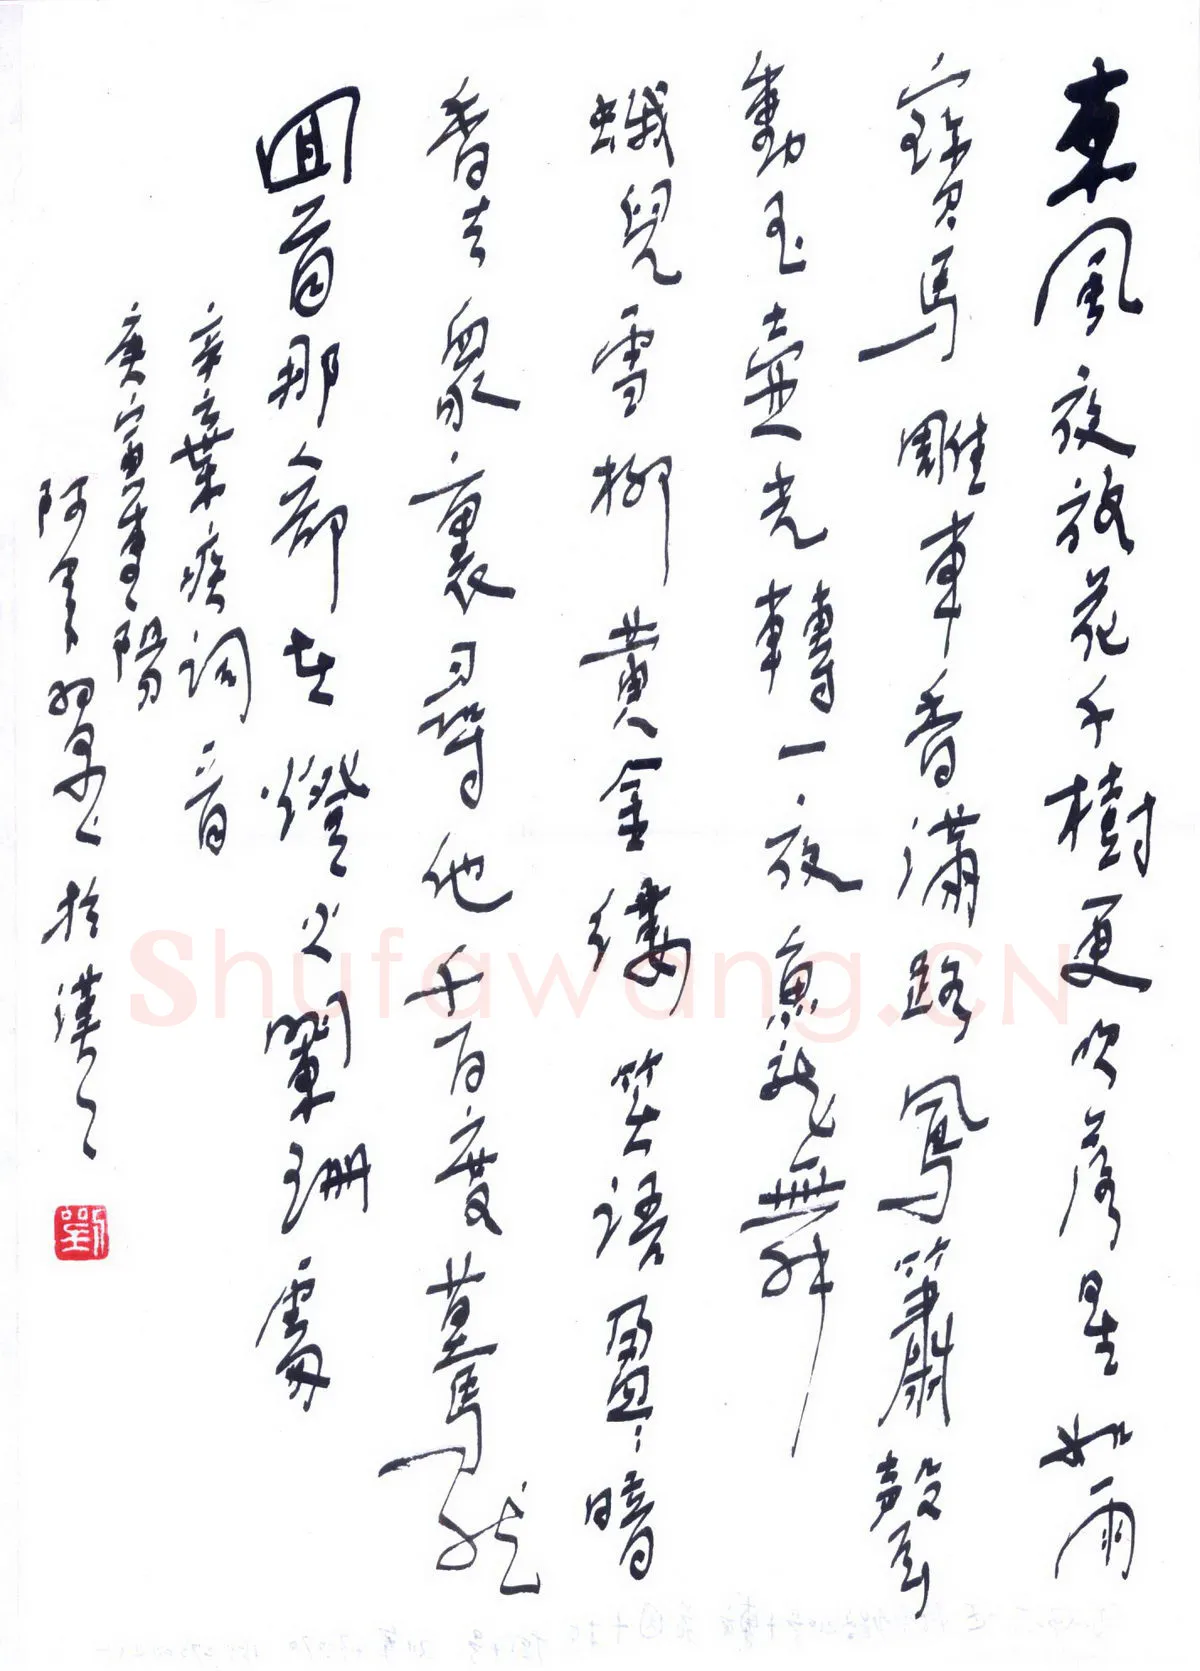 東風夜放花千樹更吹落星如雨
寶馬雕車香滿路鳳簫聲
動玉壺光轉一夜魚龍舞
蛾兒雪柳黃金縷笑語盈〻暗
香去眾裏尋他千百度驀然
回首那卻在燈火闌珊處
辛棄疾詞一首
庚寅重陽
阿 翠 於漢上
劉
Shufawang.CN